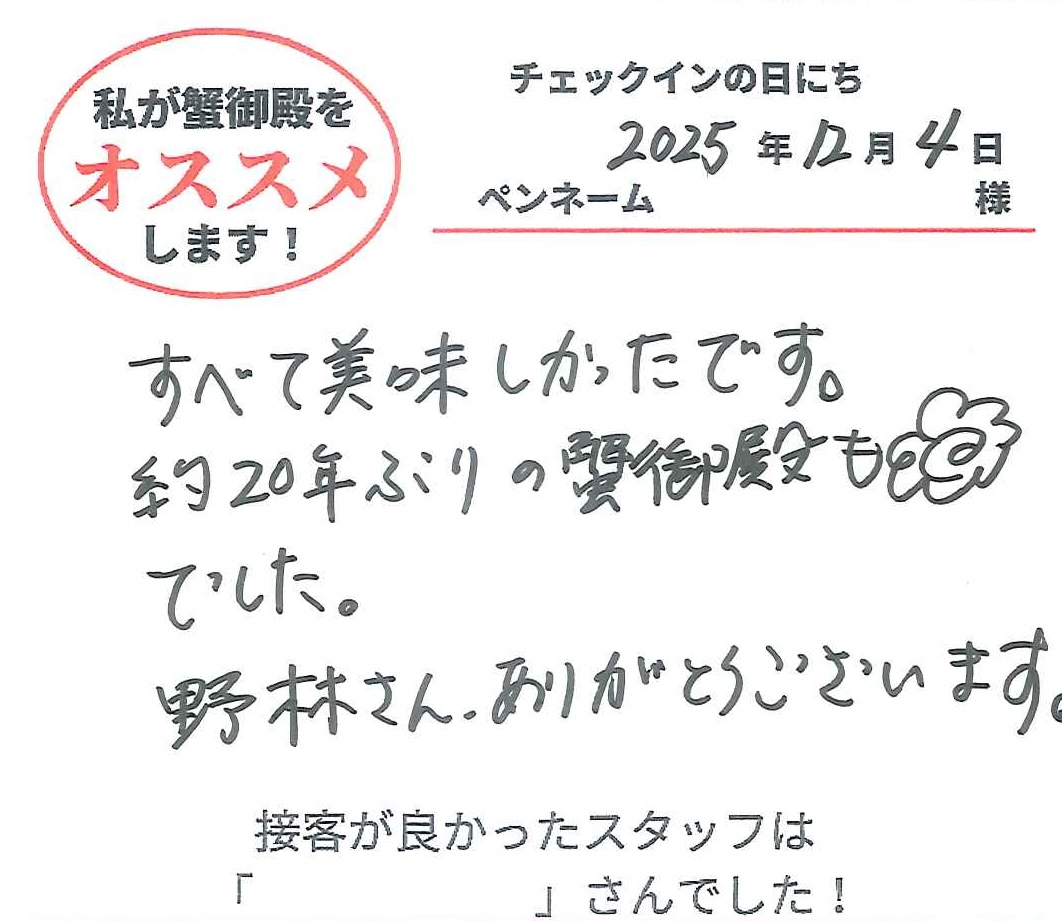 私が蟹御殿を
オススメ
します！
チェックインの日にち
2025年12月4日
ペンネーム 様
すべて美味しかったです。
約20年ぶりの蟹御殿も
でした。
野林さん、ありがとうございます。
接客が良かったスタッフは
「 」さんでした！